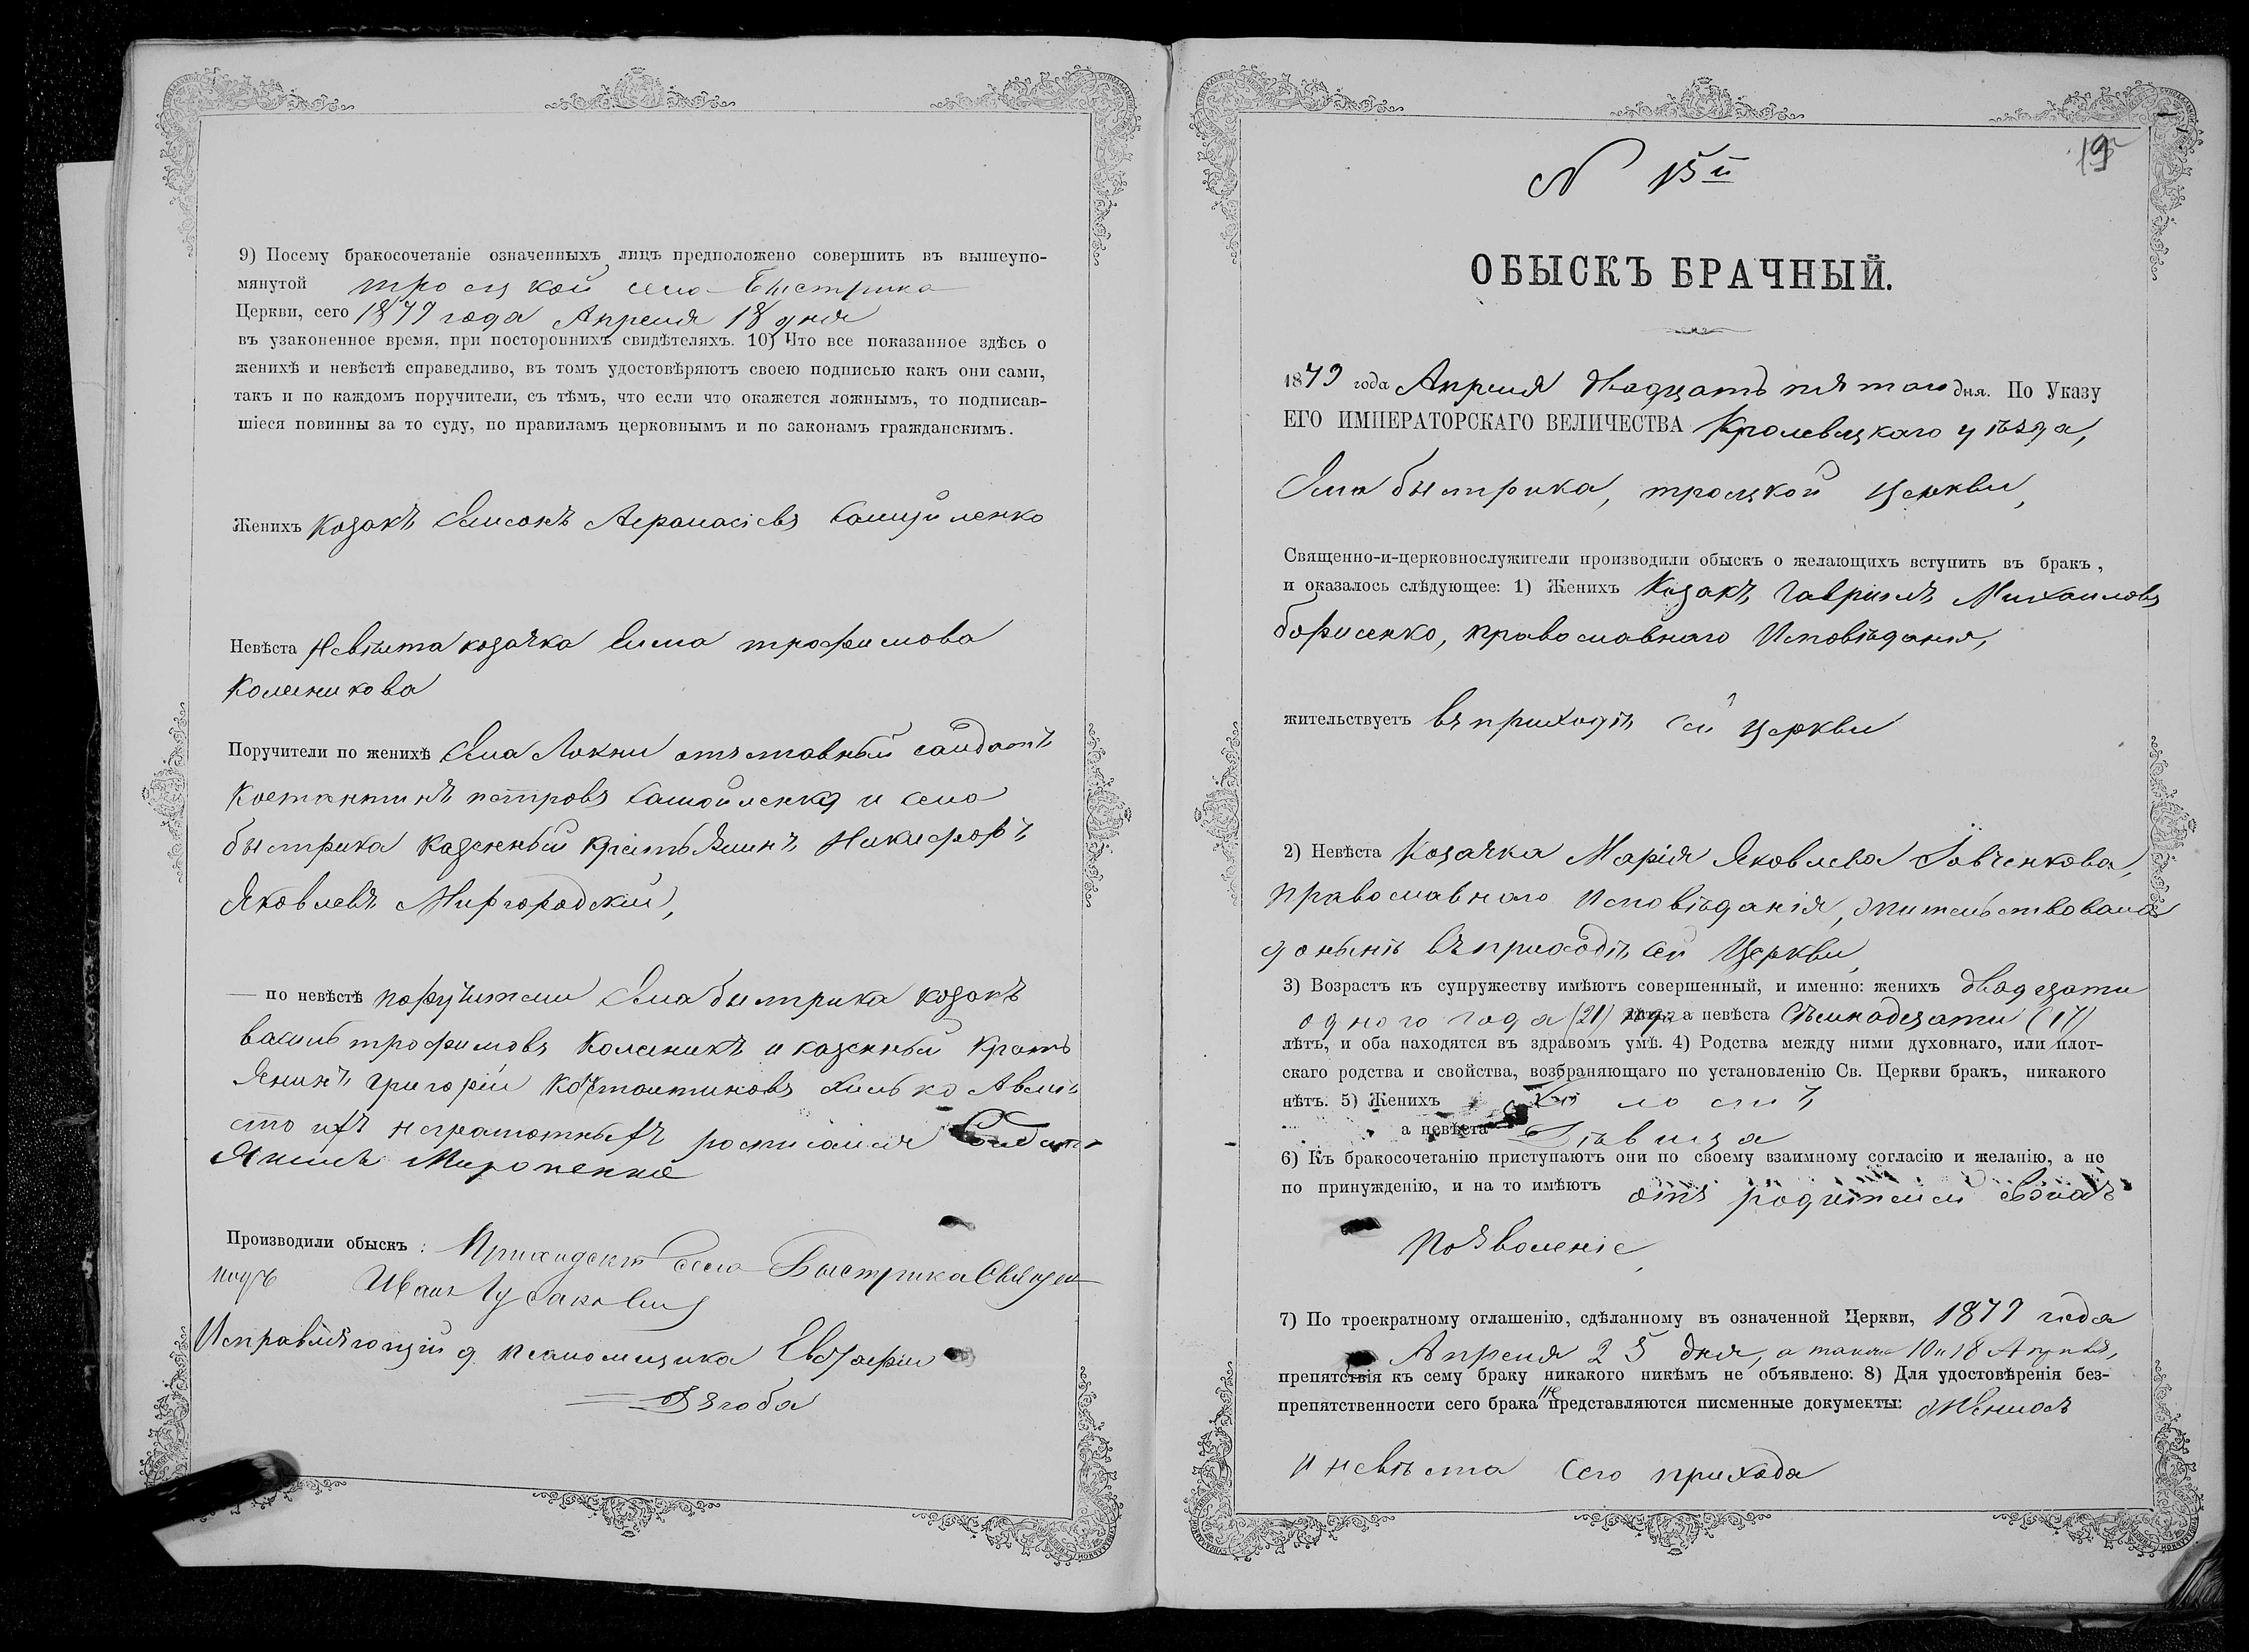 9) Посему бракосочетаніе означенныхъ лицъ предположено совершить въ вышеупо-
мянутой троицкой село Быстрика
Церкви, сего 1879 года Апреля 18 дня
въ узаконенное время, при постороннихъ свидѣтеляхъ. 10) Что все показанное здѣсь о
женихѣ и невѣстѣ справедливо, въ томъ удостовѣряютъ своею подписью какъ они сами,
такъ и по каждомъ поручители, съ тѣмъ, что если что окажется ложнымъ, то подписав-
шіеся повинны за то суду, по правиламъ церковнымъ и по законамъ гражданскимъ.
Женихъ Козакъ Самсонъ Афанасіевъ Самойленко
Невѣста Невѣста козачка трофимова
Колесникова
Поручители по женихѣ Села Локни отъставный салдатъ
Костянтинъ петровъ Самойленко и села
быстрика казенный Крестьянинъ Никифоръ
Яковлевъ Миргородский,
— по невѣстѣ поручители Села быстрика козакъ
василь трофимовъ Колесникъ и казенный Кресть
Янинъ григорій Костантиновъ Авмѣ
сто ихъ неграмотныхъ росписался
Мироненко
Производили обыскъ: Приходскій села Быстрика Священ
никъ Иванъ
Исправляющій д. псаломщика Евстафій
Дзюба
19
N 15й
ОБЫСКЪ БРАЧНЫЙ.
1879 года Апреля двадцать пятого дня. По Указу
ЕГО ИМПЕРАТОРСКАГО ВЕЛИЧЕСТВА Кролевецкаго уѣзда,
Села быстрика, троицкой церкви,
Священно-и-церковнослужители производили обыскъ о желающихъ вступить въ бракъ,
и оказалось слѣдующее: 1) Женихъ Козакъ Гавриилъ Михаиловъ
борисенко, православнаго Исповѣданія,
жительствуетъ въ приходѣ сей церкви
2) Невѣста Козачка Марія Яковлева Іовченкова,
православнаго Исповѣданія, жительствовала
доныне въ приходѣ сей Церкви,
3) Возрастъ къ супружеству имѣютъ совершенный, и именно: женихъ двадцати
одного года (21) а невѣста Сѣмнадцати (17)
лѣтъ, и оба находятся въ здравомъ умѣ. 4) Родства между ними духовнаго, или плот-
скаго родства и свойства, возбраняющаго по установленію Св. Церкви бракъ, никакого
нѣтъ. 5) Женихъ Холостъ
а невѣста Дѣвица
6) Къ бракосочетанію приступаютъ они по своему взаимному согласію и желанію, а не
по принужденію, и на то имѣютъ отъ родителей своихъ
Позволеніе,
7) По троекратному оглашенію, сдѣланному въ означенной Церкви, 1879 года
Апреля 25 дня, а также 10 и 18 Апреля,
препятствія къ сему браку никакого никѣмъ не объявлено. 8) Для удостовѣренія без-
препятственности сего брака не представляются писменные документы: Женихъ
и невѣста сего прихода